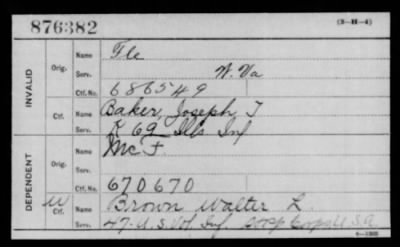 876382
(3-H-4)
INVALID
Orig.
Name
Fle
Serv.
W. Va
Ctf. No.
686549
Ctf.
Name
Baker, Joseph T
Serv.
K 69 Ills Inf
DEPENDENT
Orig.
Name
McF.
Serv.
Ctf. No.
670670
W
Ctf.
Name
Brown Walter L.
Serv.
47 U.S. Vol. Inf. Hosp Corps U S A